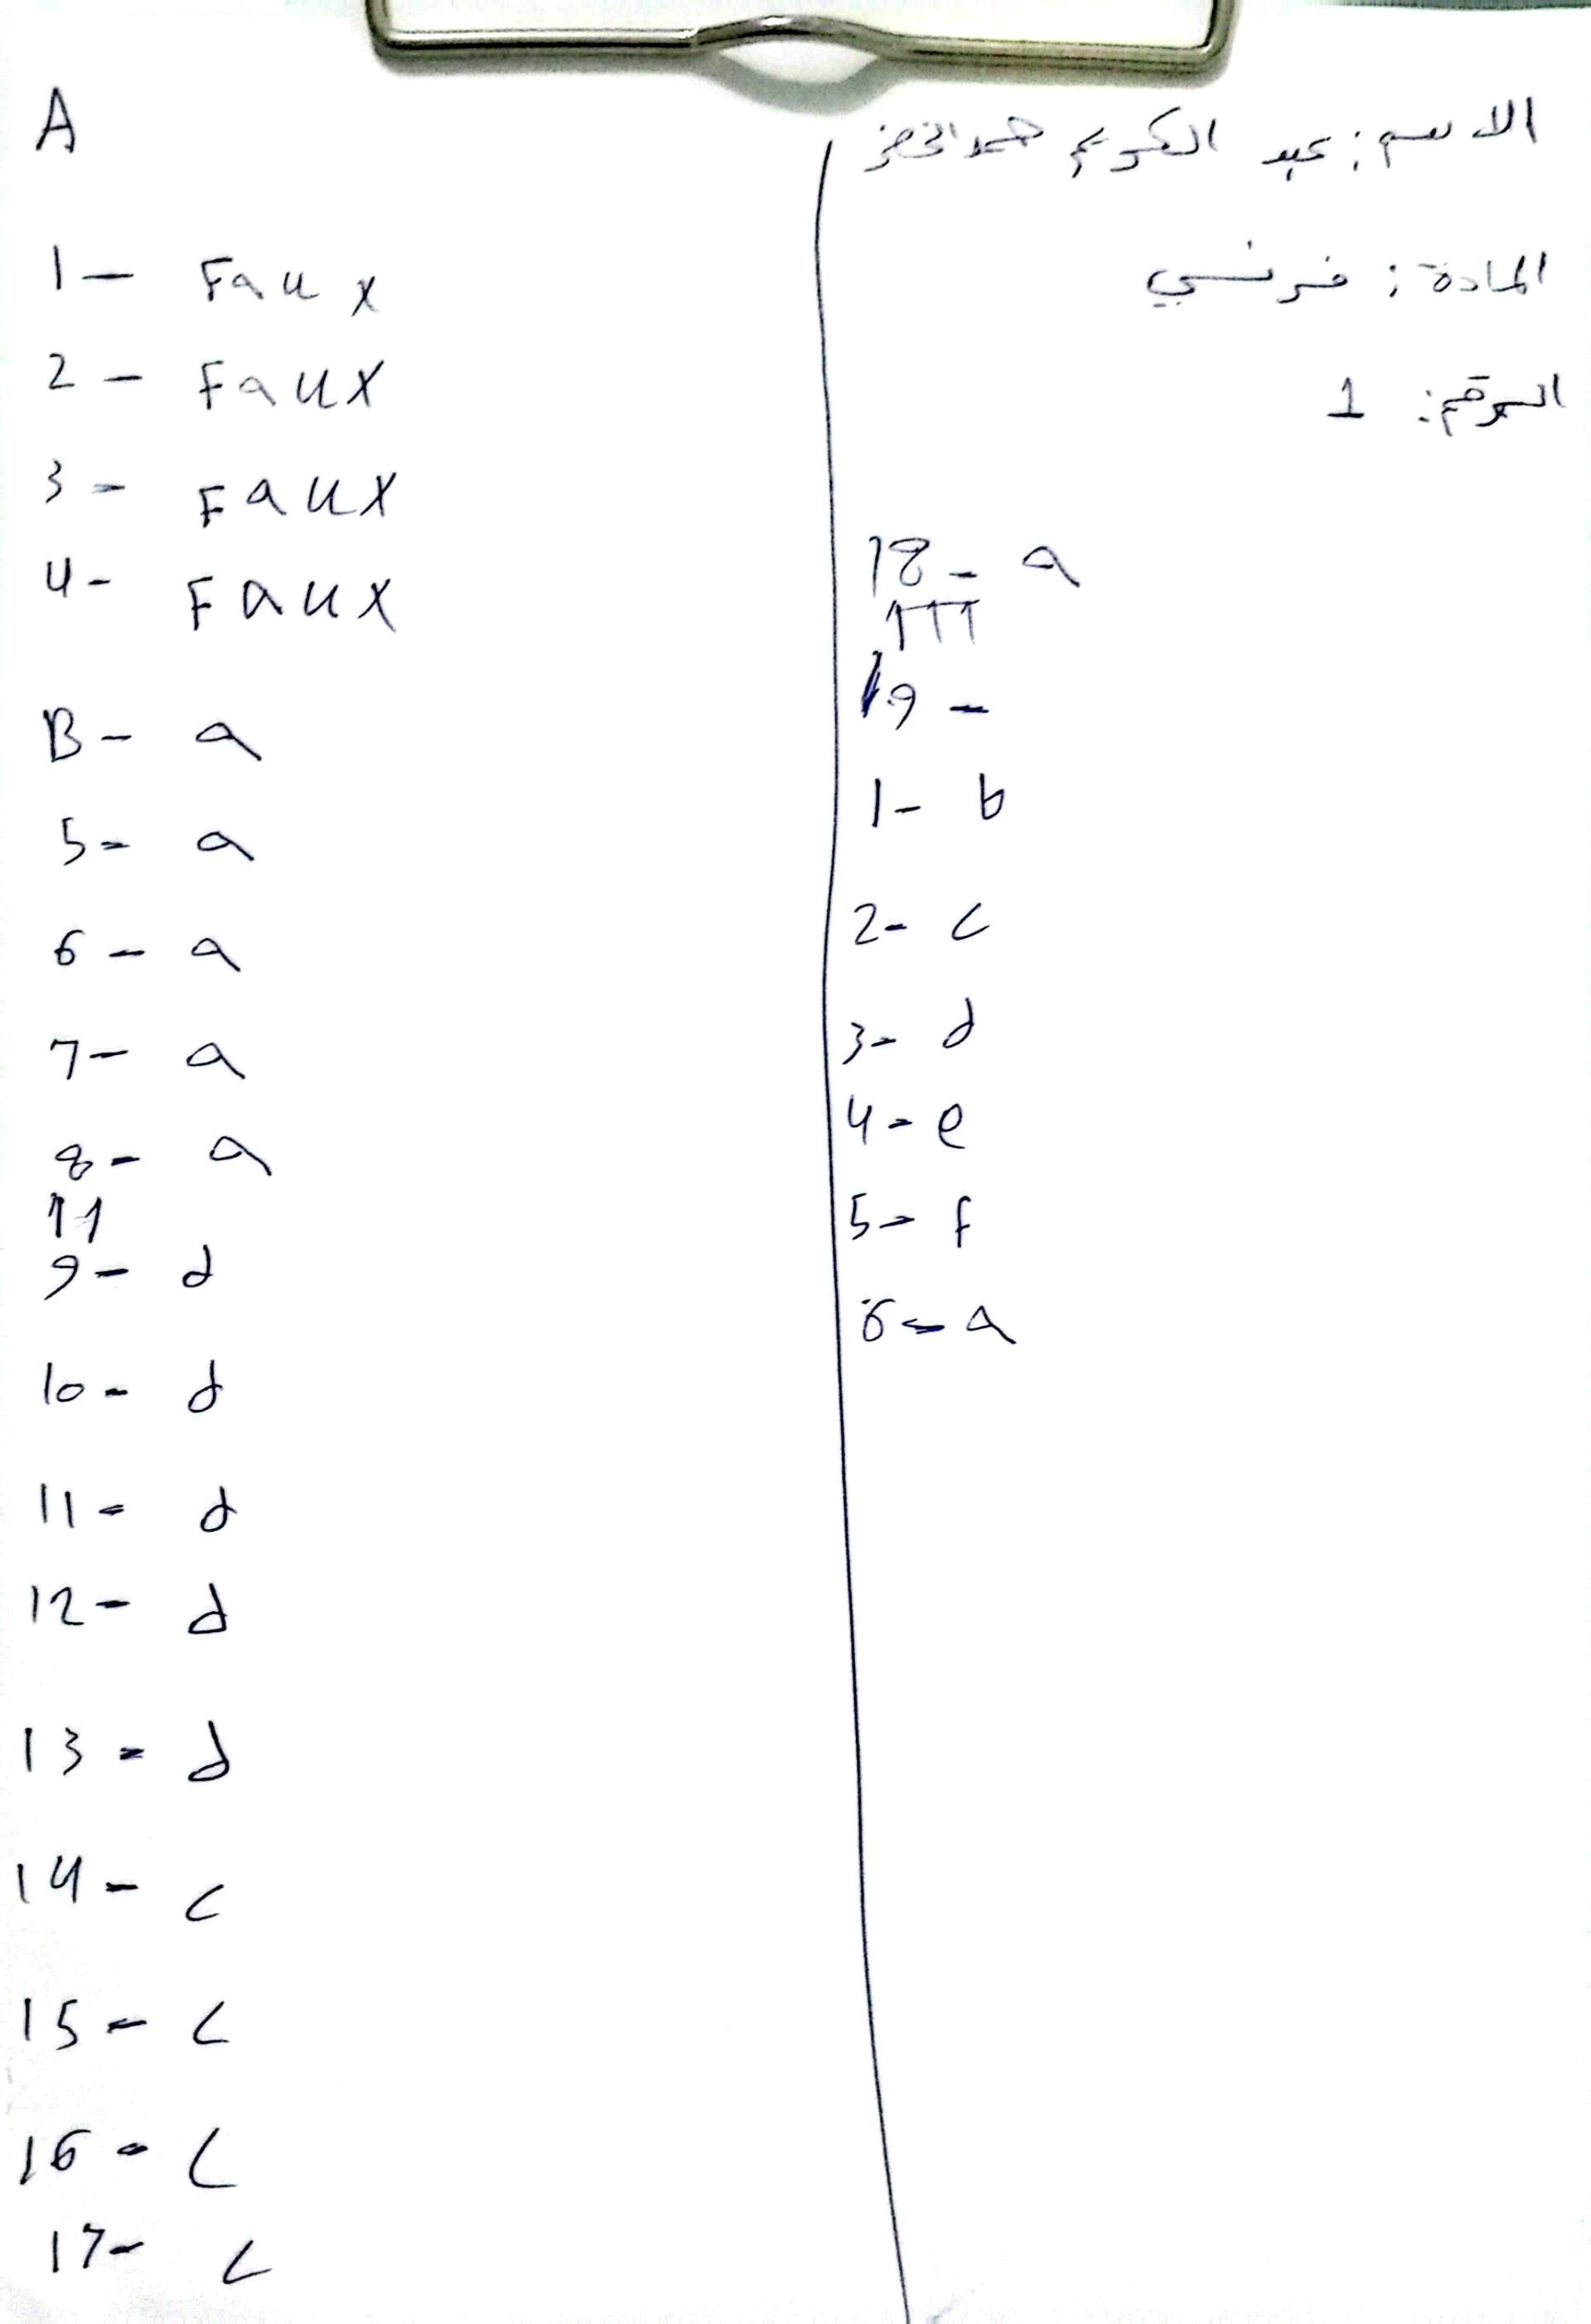 A
1- Faux
2- Faux
3- Faux
4- Faux
B- a
5- a
6- a
7- a
8- a
11
9- d
10- d
11- d
12- d
13- d
14- c
15- c
16- c
17- c
الاسم: عبد الكريم
المادة: فرنسي
الرقم: 1
18- a
III
19-
1- b
2- c
3- d
4- e
5- f
6- a